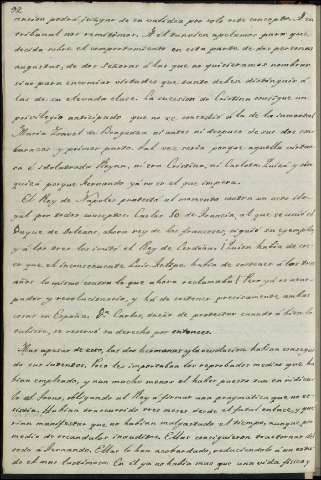 92
nacion podrá juzgar de su validéz por solo este concepto. A su
tribunal nos remitimos. A él tambien apelamos para que
decida sobre el comportamiento en esta parte de dos personas
augustas, de dos señoras á las que no quisieramos nombrar
sino para encomiar virtudes que tanto deben distinguir á
las de su elevada clase. La sucesion de Cristina consigue un
privilegio anticipado que no se concedió á la de la inmortal
Maria Isabel de Braganza ni antes ni despues de sus dos em-
barazos y primer parto. Tal vez sería porque aquella
é idolatrada Reyna, ni era Cristina, ni Carlota. Quizá y sin
quizá porque Fernando ya no es el que impera.
El Rey de Nápoles protestó al momento contra un acto ile-
gal por todos conceptos. Carlos 10 de Francia, al que se unió el
Duque de Orleans ahora rey de los franceses, siguió su ejemplo,
y á los tres los imitó el Rey de Cerdeña. ¡Quien habia de
que el inconsecuente Luis Felipe habia de sostener á los tres
años lo mismo contra lo que ahora reclamaba! Pero yá es usur-
pador y revolucionario, y há de sostener precisamente ambas
cosas en España. Dn. Carlos, dueño de protestar cuando á bien lo
tubiere, se reservó su derecho por entonces.
Mas apesar de esto, las dos hermanas y la revolucion habian consegui-
do sus intentos. Poco les importaban los reprobados medios que ha-
bian empleado, y aun mucho menos el haber puesto en ridicu-
lo al Trono, obligando al Rey á firmar una pragmatica que no ec-
sistia. Habian transcurrido tres meses desde el fatal enlace, y que-
rian manifestar que no habian malgastado el tiempo, aunque por
medio de escandalos inauditos. Ellas consiguieron trastornar del
todo á Fernando. Ellas lo han acobardado, reduciendolo á un esta-
do el mas lastimoso. En él ya no habia mas que una vida fisica y